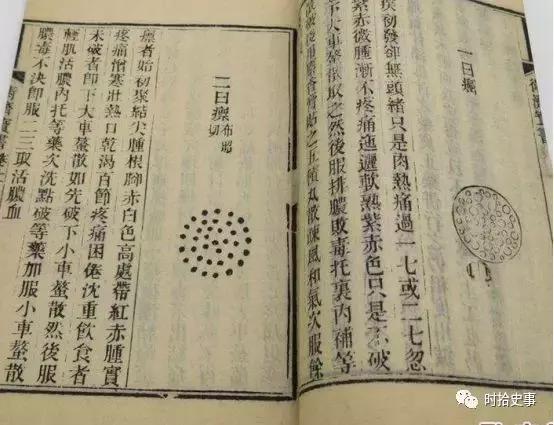 一曰癌
疾初發卻無頭緒只是肉熱痛過一七或二七忽
紫赤微腫漸不疼痛迤邐軟熟紫赤色只是不破
下大車螯散取之然後服排膿敗毒托裏內補等
後用麝香膏貼之五積丸散疎風和氣次服餘
二曰瘭 布昭切
瘭者始初聚結尖腫根腳赤白色高處帶紅赤腫實
疼痛憎寒壯熱口乾渴百節疼痛困倦沈重飲食者
未破者卽下大車螯散如先破下小車螯散然後服
輕肌活膿內托等藥次洗點破等藥加服小車螯散
膿毒不決卽服二三取活膿血
时拾史事